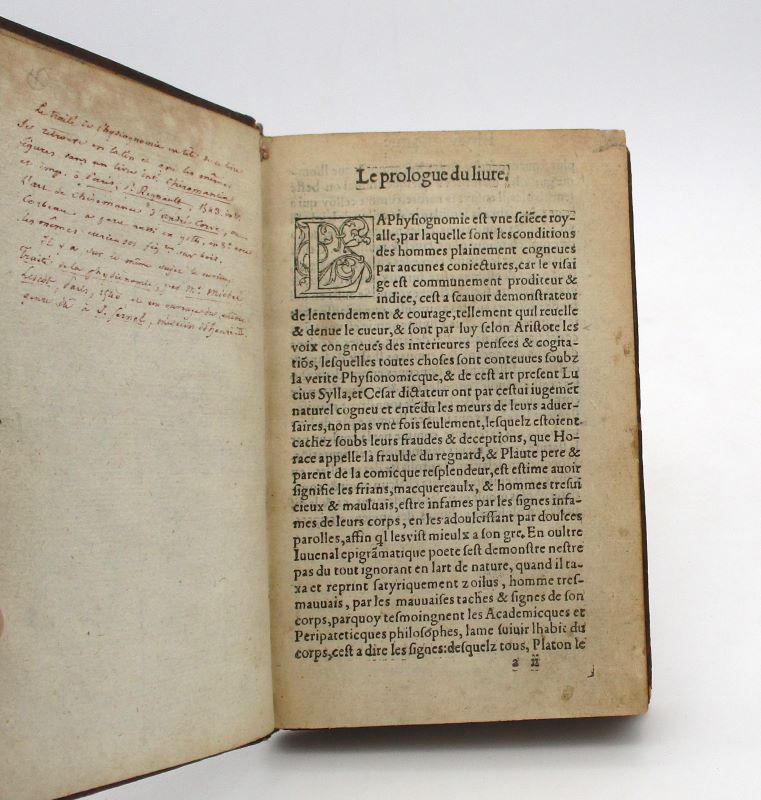 Le traité de Physiognomie en tête de ce livre
se retrouve en latin et avec les mêmes
figures dans un livre int. Chiromantia
et imp. à Paris, Regnault, 1543 in 8º.
L'art de Chiromance d'André Corve, ou
Corbeau a paru aussi en goth. in 8º avec
les mêmes curieuses fig. sur bois.
Il y a sur le même sujet le
Traité de la physionomie, par Mº Michel
Lescot, Paris, 1540 et un ouvrage du même
genre dû à J. Fernel, médecin d'henri II.
Le prologue du liure.
LA Physiognomie est vne sciẽce roy-
alle, par laquelle sont lesconditions
des hommes plainement cogneues
par aucunes coniectures, car le visai
ge est communement proditeur &
indice, cest a scauoir demonstrateur
de lentendement & courage, tellement quil reuelle
& denue le cueur, & sont par luy selon Aristote les
voix congneues des interieures pensees & cogita-
tiõs, lesquelles toutes choses sont contenues soubz
la verite Physionomicque, & de cest art present Lu
cius Sylla, et Cesar dictateur ont par cestui iugemẽt
naturel cogneu et entẽdu les meurs de leurs aduer-
saires, non pas vne fois seulement, lesquelz estoient
cachez soubs leurs fraudes & deceptions, que Ho-
race appelle la fraulde du regnard, & Plaute pere &
parent de la comicque resplendeur, est estime auoir
signifie les frians, macquereaulx, & hommes tresui
cieux & mauluais, estre infames par les signes infa-
mes de leurs corps, en les adoulcissant par doulces
parolles, affin ql lesvist mieulx a son gre. En oultre
Iuuenal epigrãmatique poete sest demonstre nestre
pas du tout ignorant en lart de nature, quand il ta-
xa et reprint satyriquement zoilus, homme tres-
mauuais, par les mauuaises taches & signes de son
corps, parquoy tesmoingnent les Academicques et
Peripateticques philosophes, lame suiuir lhabit du
corps, cest a dire les signes: desquelz tous, Platon le
a ii